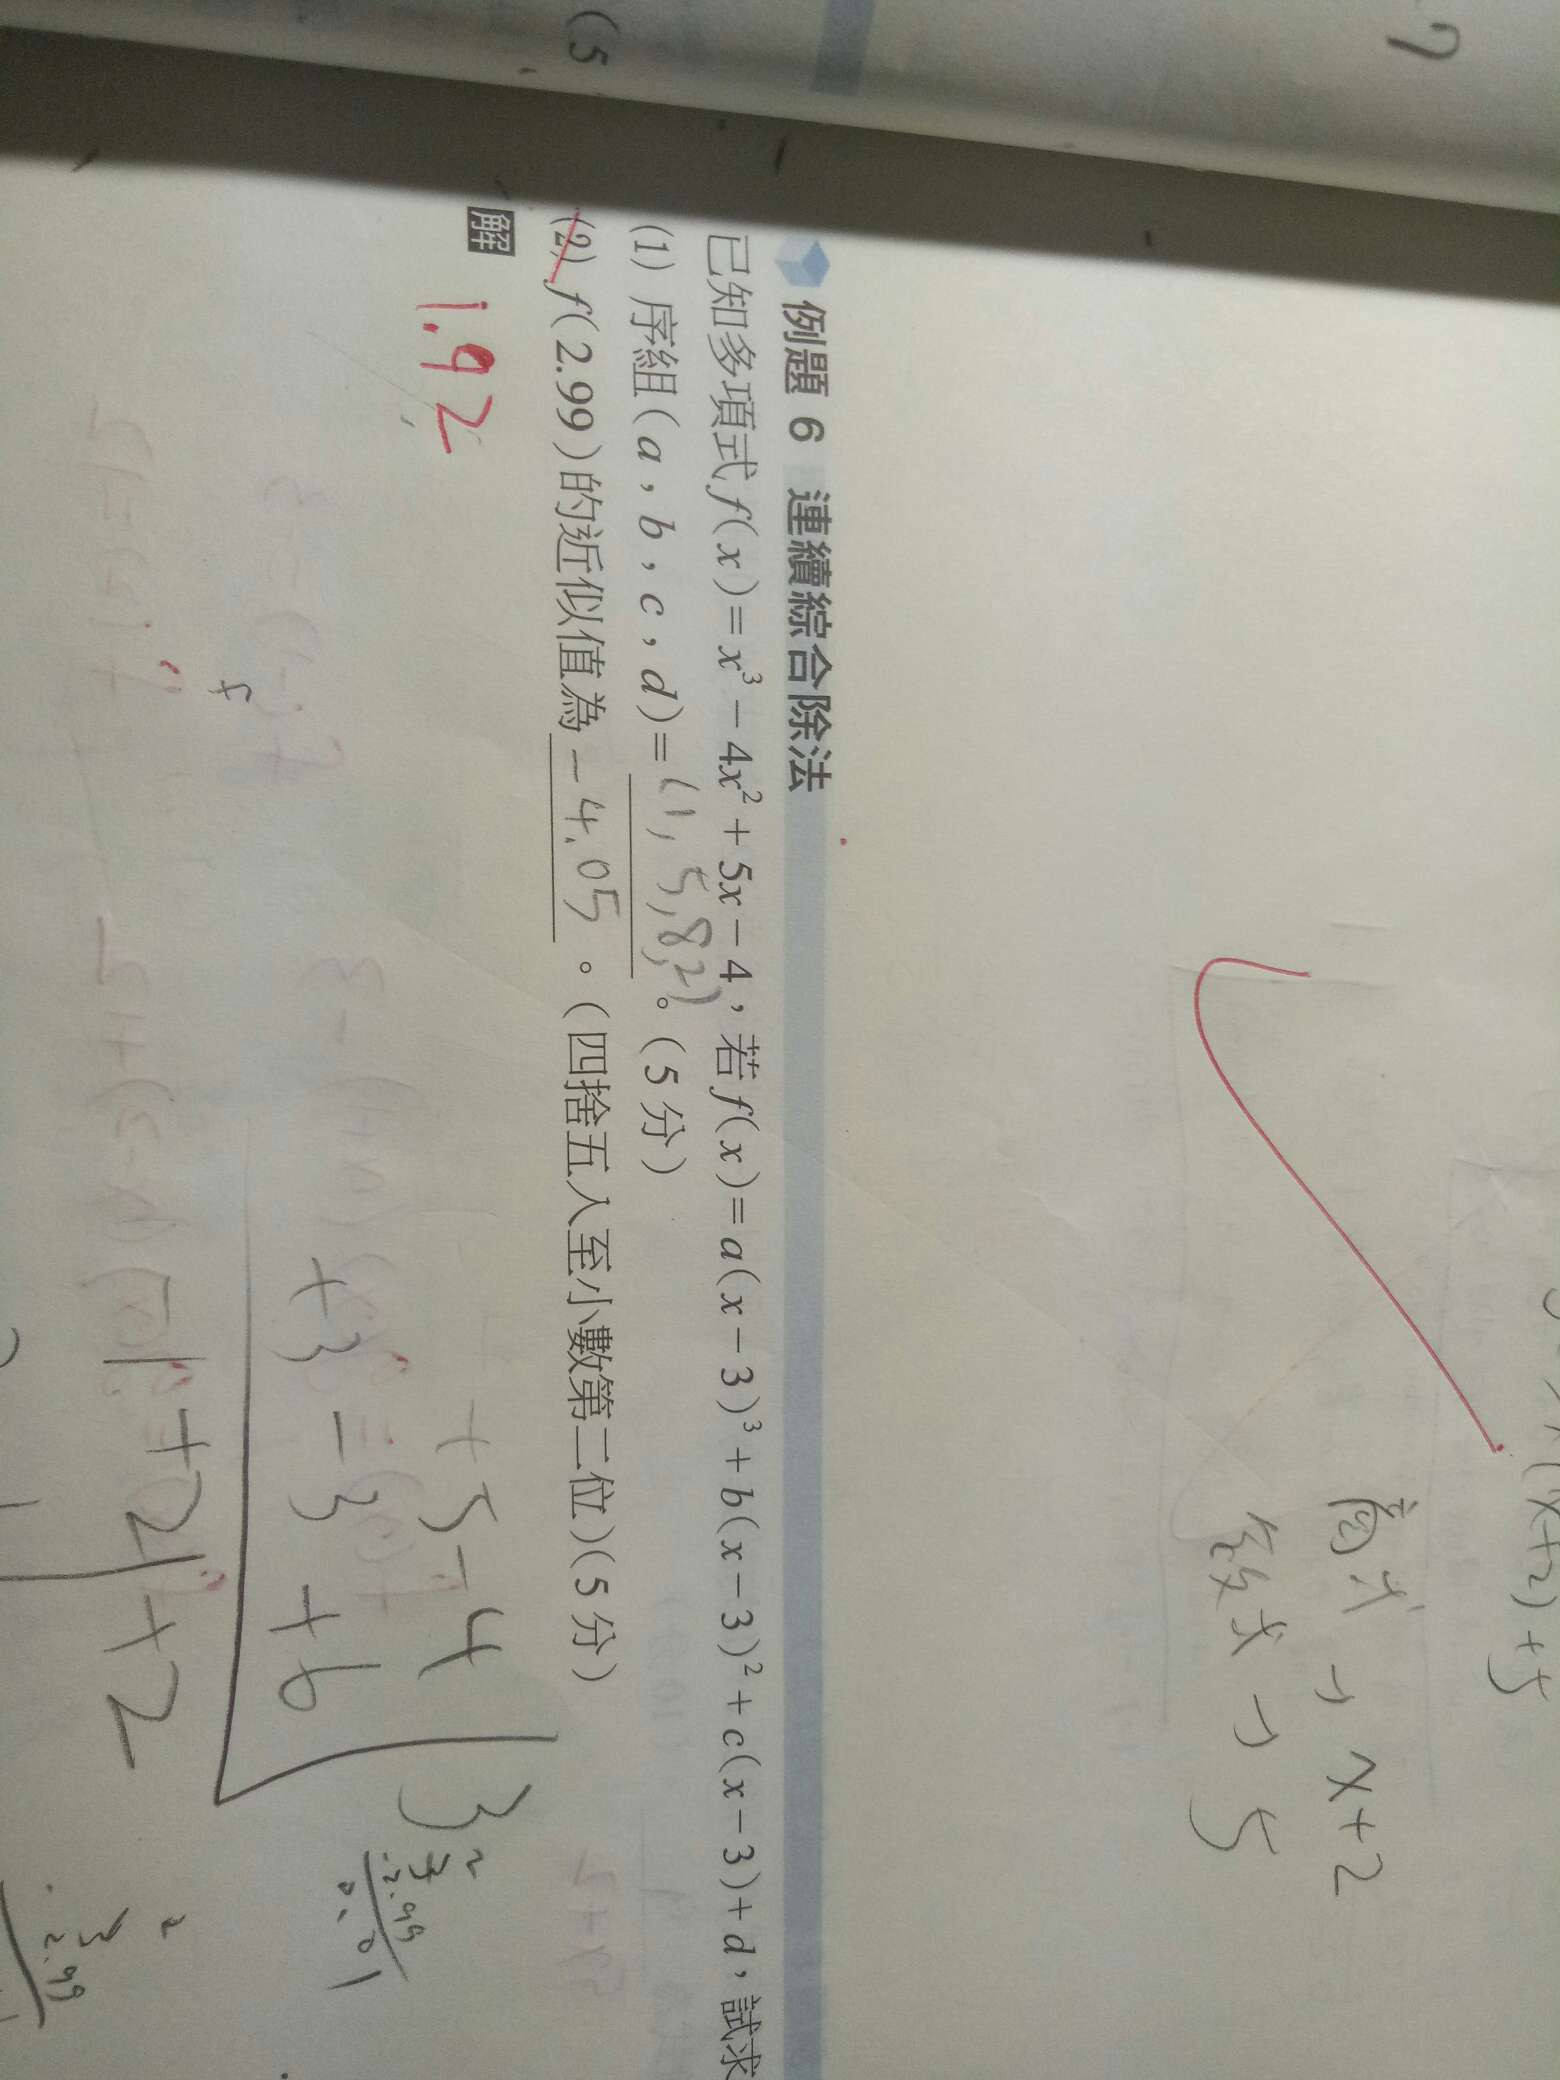 7
(5
(x+2)+5
商式 → x+2
餘式 → 5
例題 6 連續綜合除法
已知多項式 f(x)=x³−4x²+5x−4，若 f(x)=a(x−3)³+b(x−3)²+c(x−3)+d，試求
(1) 序組(a，b，c，d)=(1,5,8,2)。(5 分)
(2) f(2.99)的近似值為 −4.05。(四捨五入至小數第二位)(5 分)
解
1.92
+5−4 3
+3−3+6
1−1+2+2
2
3
2.99
0.01
2
3
2.99